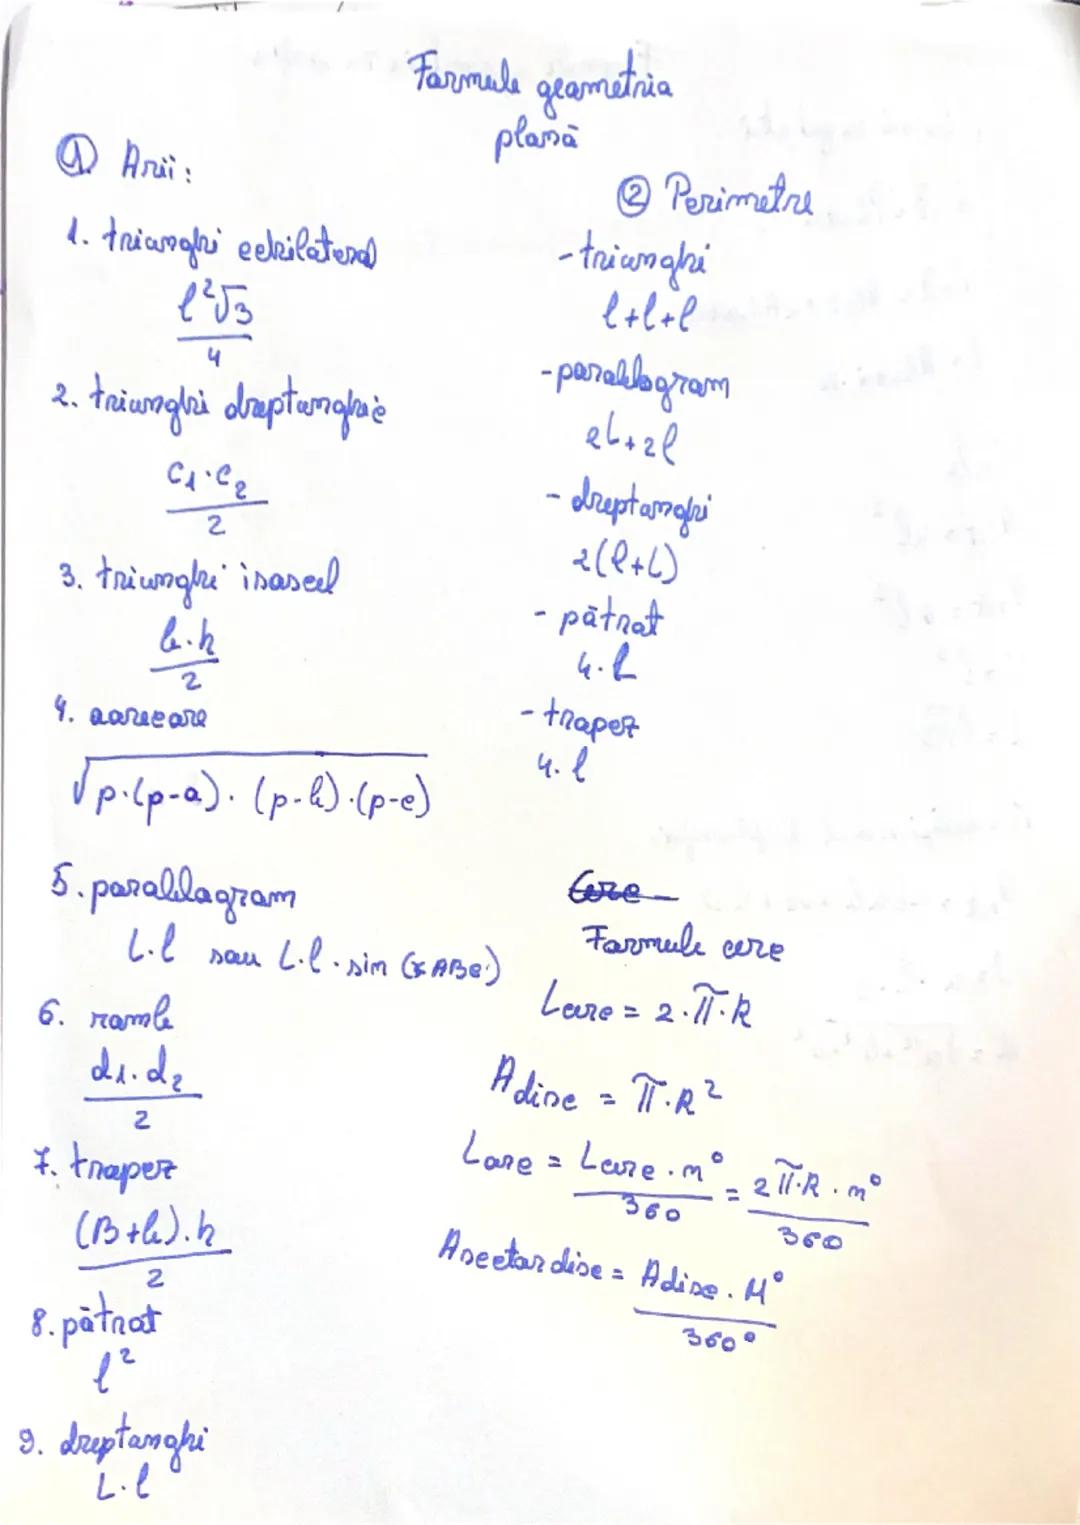 Formule geometria
plană
① Arii:
1. triunghi echilateral
l²√3
4
2. triunghi dreptunghic
C1·C2
2
3. triunghi isoscel
b·h
2
4. oarecare
√p·(p-a)·(p-b)·(p-c)
5. paralelogram
L·l sau L·l·sin (∢ABC)
6. romb
d1·d2
2
7. trapez
(B+b)·h
2
8. pătrat
l²
9. dreptunghi
L·l
② Perimetre
- triunghi
l+l+l
- paralelogram
2L+2l
- dreptunghi
2(l+L)
- pătrat
4·l
- trapez
4·l
Cerc
Formule cerc
Lcerc = 2·π·R
Adisc = π·R²
Larc = Lcerc·m° = 2π·R·m°
360 360
Asector disc = Adisc·M°
360°